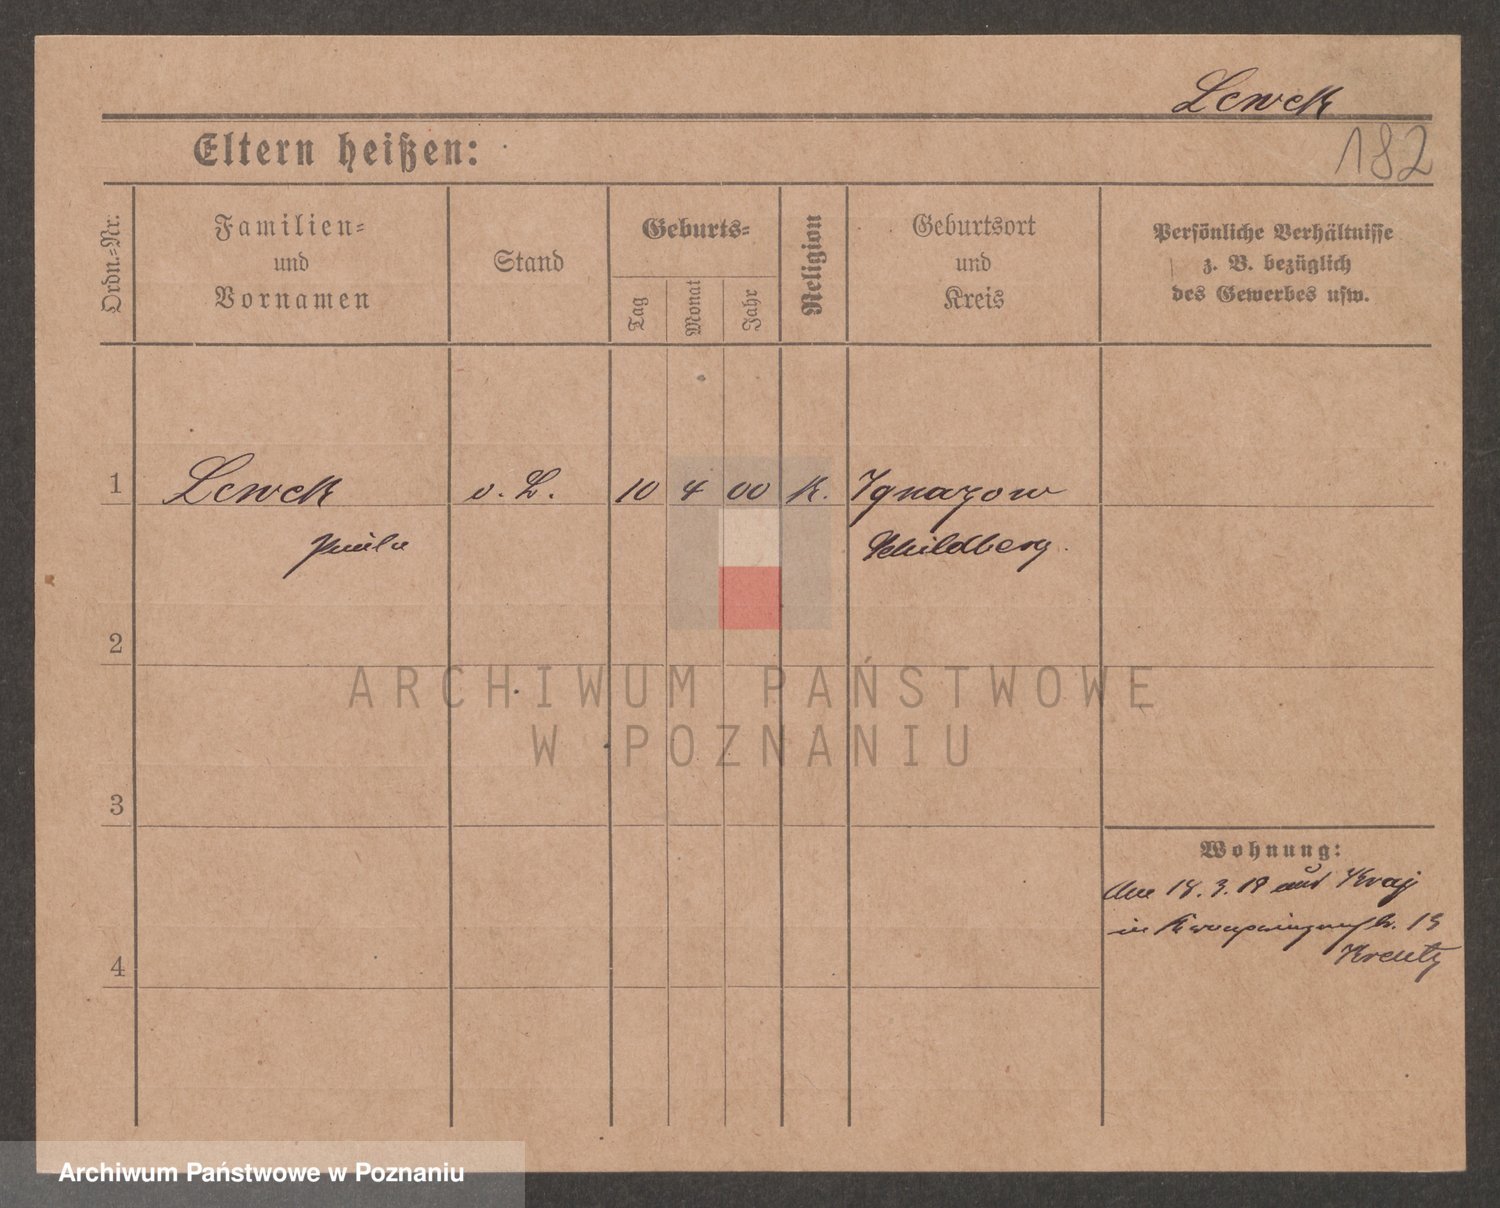 Lewek
182
Eltern heißen:
Ordn.=Nr.
Familien=
und
Vornamen
Stand
Geburts=
Tag
Monat
Jahr
Religion
Geburtsort
und
Kreis
Persönliche Verhältnisse
z. B. bezüglich
des Gewerbes usw.
1 Lewek v. L. 10 4 00 k. Ignazow
Schildberg.
2
ARCHIWUM PAŃSTWOWE
W POZNANIU
3
Wohnung:
Am 18. 3. 18 aus
in 13
Kreutz
4
Archiwum Państwowe w Poznaniu